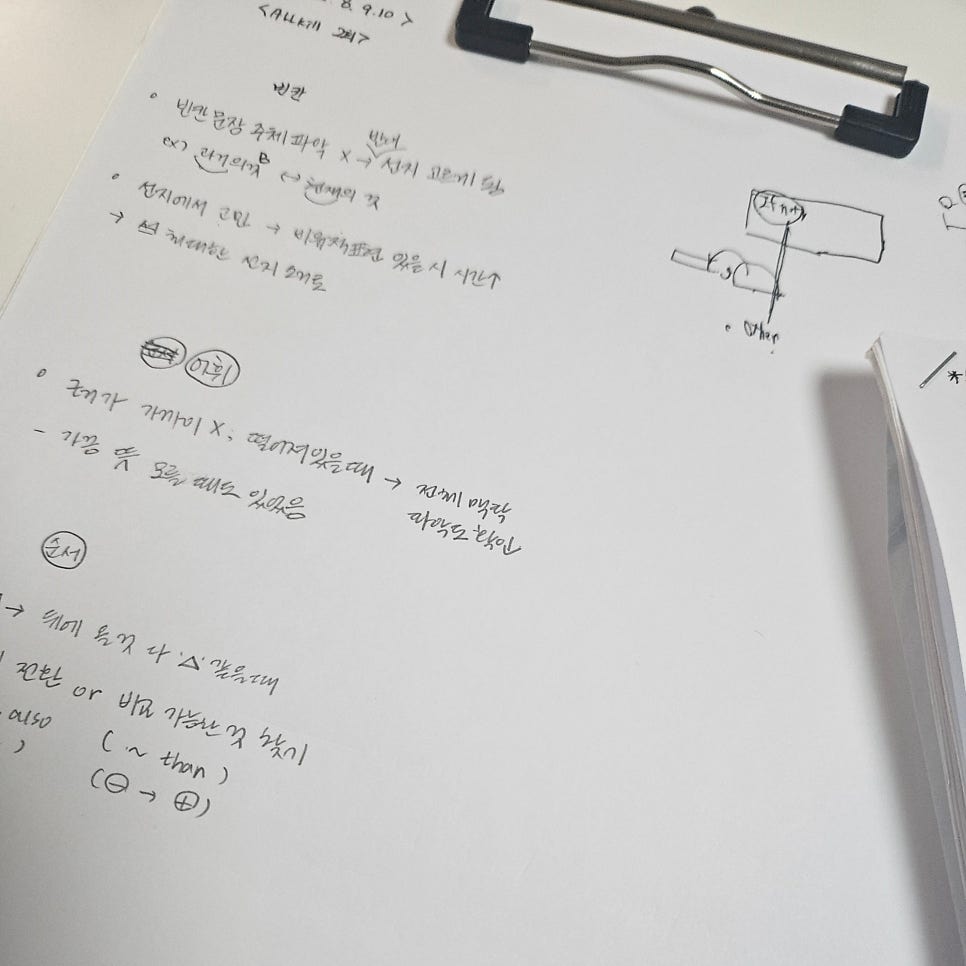 8. 9. 10 >
<ALL KILL 2회>
빈칸
• 빈칸 문장 주체 파악 X → 반대 선지 고르게 됨
ex) 과거의 것 B ↔ 현재의 것
• 선지에서 고민 → 비유적표현 있을 시 시간↑
→ 최대한 선지 소거로
순서 어휘
• 근거가 가까이 X, 떨어져있을때 → 전체 맥락
파악도 할 것
- 가끔 뜻 모를 때도 있었음
순서
→ 뒤에 올 것 다 △ 같을때
전환 or 비교 가능한 것 찾기
also (~ than)
(⊖ → ⊕)
If not
Other